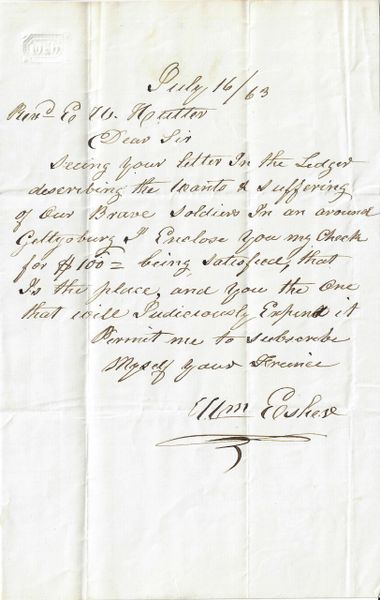 July 16/63
Revd E W Hutter
Dear Sir
Seeing your letter In the Ledger
describing the Wants & Suffering
of Our Brave Soldiers In an around
Gettysburg I Enclose You my Check
for $100= being satisfied, that
Is the place, and you the One
that will Judiciously Expend it
Permit me to subscribe
Myself Your Friend
Wm